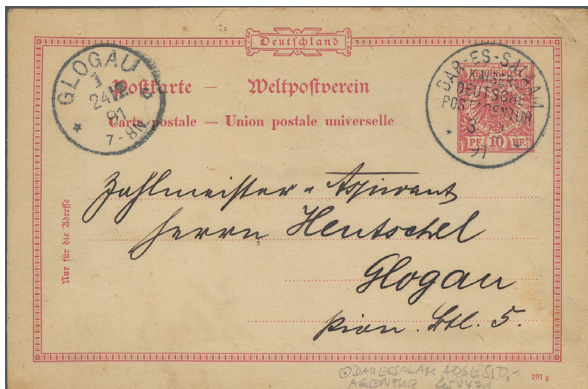 Deutschland
Postkarte — Weltpostverein
Carte postale — Union postale universelle
GLOGAU
1
24 12
91
7-8N
*
DAR-ES-SALAAM
KAISERL.
DEUTSCHE
POSTAGENTUR
91
REICHSPOST
PF 10 PF
Nur für die Adresse
Zahlmeister-Aspirant
Herrn Hentschel
Glogau
Pion. Btl. 5.
DARESSALAM
AGENTUR
191 g